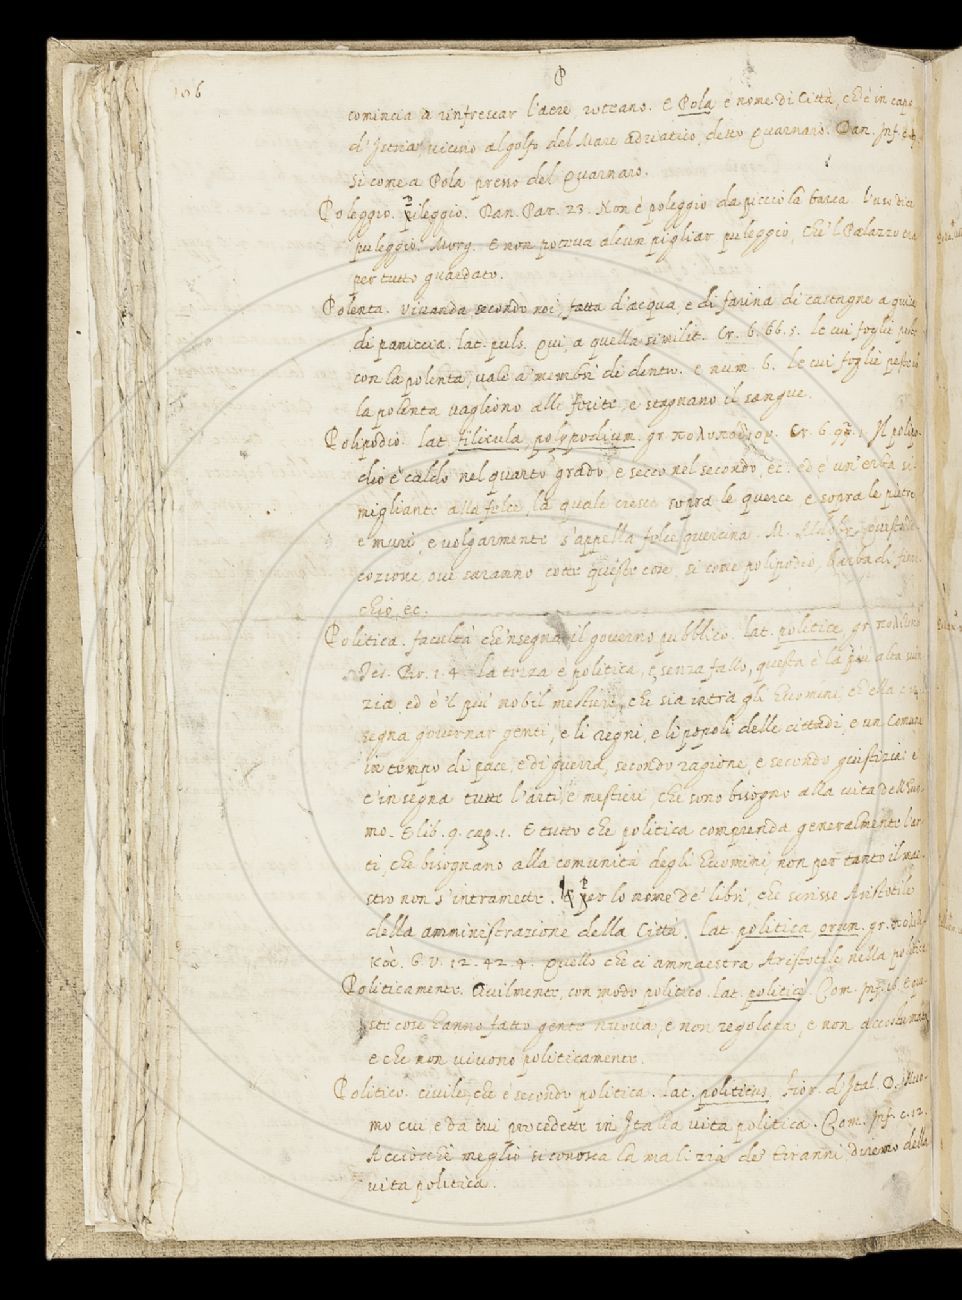 106
P
comincia a rinfrescar l'aere roteano. E Pola é nome di Città, ch'è in capo
d'Istria vicino al golfo del Mare adriatico, detto Quarnaro. Dan. Inf.
Sì come a Pola presso del Quarnaro.
Poleggio. pileggio. Dan. Par. 23. Non è poleggio da picciola barca. l'uso dice
puleggio. Morg. E non poteva alcun pigliar puleggio, Che 'l Palazzo era
per tutto guardato.
Polenta. vivanda, secondo noi, fatta d'acqua, e di farina di castagne a guisa
di paniccia. lat. puls. Qui, a quella similit. Cr. 6. 66. 5. le cui foglie peste
con la polenta, vale a' membri di dentro. e num. 6. Le cui foglie peste con
la polenta vagliono alle ferite, e stagnano il sangue.
Polipodio. lat. filicula, polypodium. gr. πολυπόδιον. Cr. 6. 97. 1. Il polipo-
dio è caldo nel quarto grado, e secco nel secondo, ec. ed è un'erba si-
migliante alla felce, la quale cresce sopra le querce e sopra le pietre
e muri, e volgarmente s'appella felce quercina. M. Aldobr.
cozione, ove saranno cotte queste cose, sì come polipodio, barba di finoc-
chio, ec.
Politica. facultà che 'nsegna il governo pubblico. lat. politice, gr. πολιτικὴ
Tes. Br. 1. 4. la terza è politica, e senza fallo, questa è la più alta scien-
zia, ed è il più nobil mestiere, che sia intra gli huomini, ch'ella c'in-
segna governar genti, e li regni, e li popoli delle cittadi, e un Comune
in tempo di pace, e di guerra, secondo ragione, e secondo giustizia: e
c'insegna tutte l'arti, e mestieri, che sono bisogno alla vita dell'huo-
mo. E lib. 9. cap. 1. E tutto che politica comprenda generalmente l'ar-
ti, che bisognano alla comunità degli huomini, non per tanto il mae-
stro non s'intramette. per lo nome de' libri, che scrisse Aristotile
della amministrazione della Città. lat. politica, orum. gr. πολιτι-
κῶν. G. V. 12. 42. 4. Quello che ci ammaestra Aristotile nella politica
Politicamente. Civilmente, con modo politico. lat. politice. Com. Inf. 16. E que-
ste cose hanno fatto gente nuova, e non regolata, e non accostumata
e che non vivono politicamente.
Politico. civile, che è secondo politica. lat. politicus. Fior. d'Ital. D. Huo-
mo cui, e da cui procedette in Italia vita politica. Com. Inf. c. 12.
Acciocchè meglio si conosca la malizia de' tiranni, diremo della
vita politica.